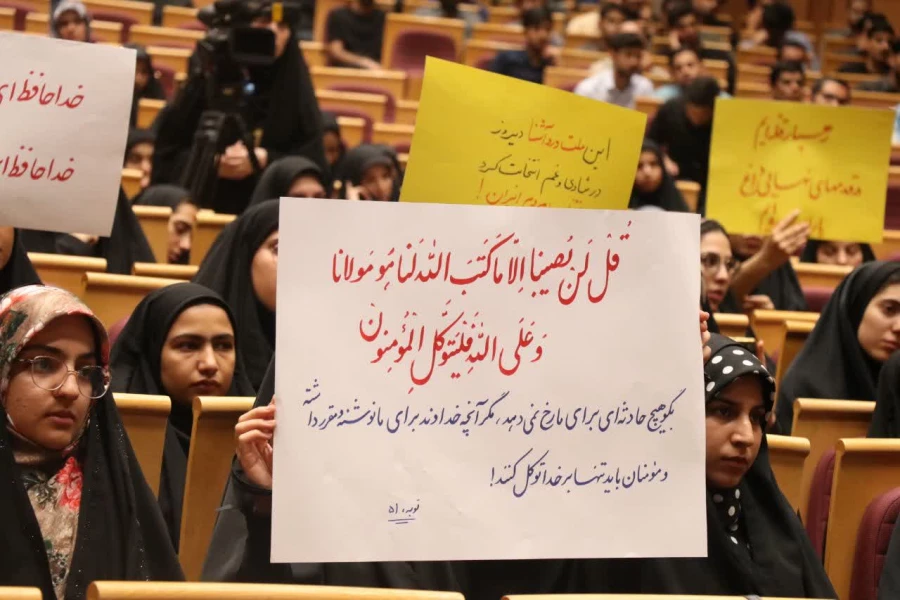 خداحافظ ای
خداحافظ ای
این ملت درد آشنا دیروز
در شادی و غم انتخابت کرد
قُل لَن یُصیبَنا اِلّا ما کَتَبَ اللهُ لَنا هُوَ مَولانا
وَ عَلَی اللهِ فَلیَتَوَکَّلِ المُؤمِنون
بگو هیچ حادثه‌ای برای ما رخ نمی دهد، مگر آنچه خداوند برای ما نوشته و مقرر داشته
و مؤمنان باید تنها بر خدا توکل کنند!
توبه، ۵۱